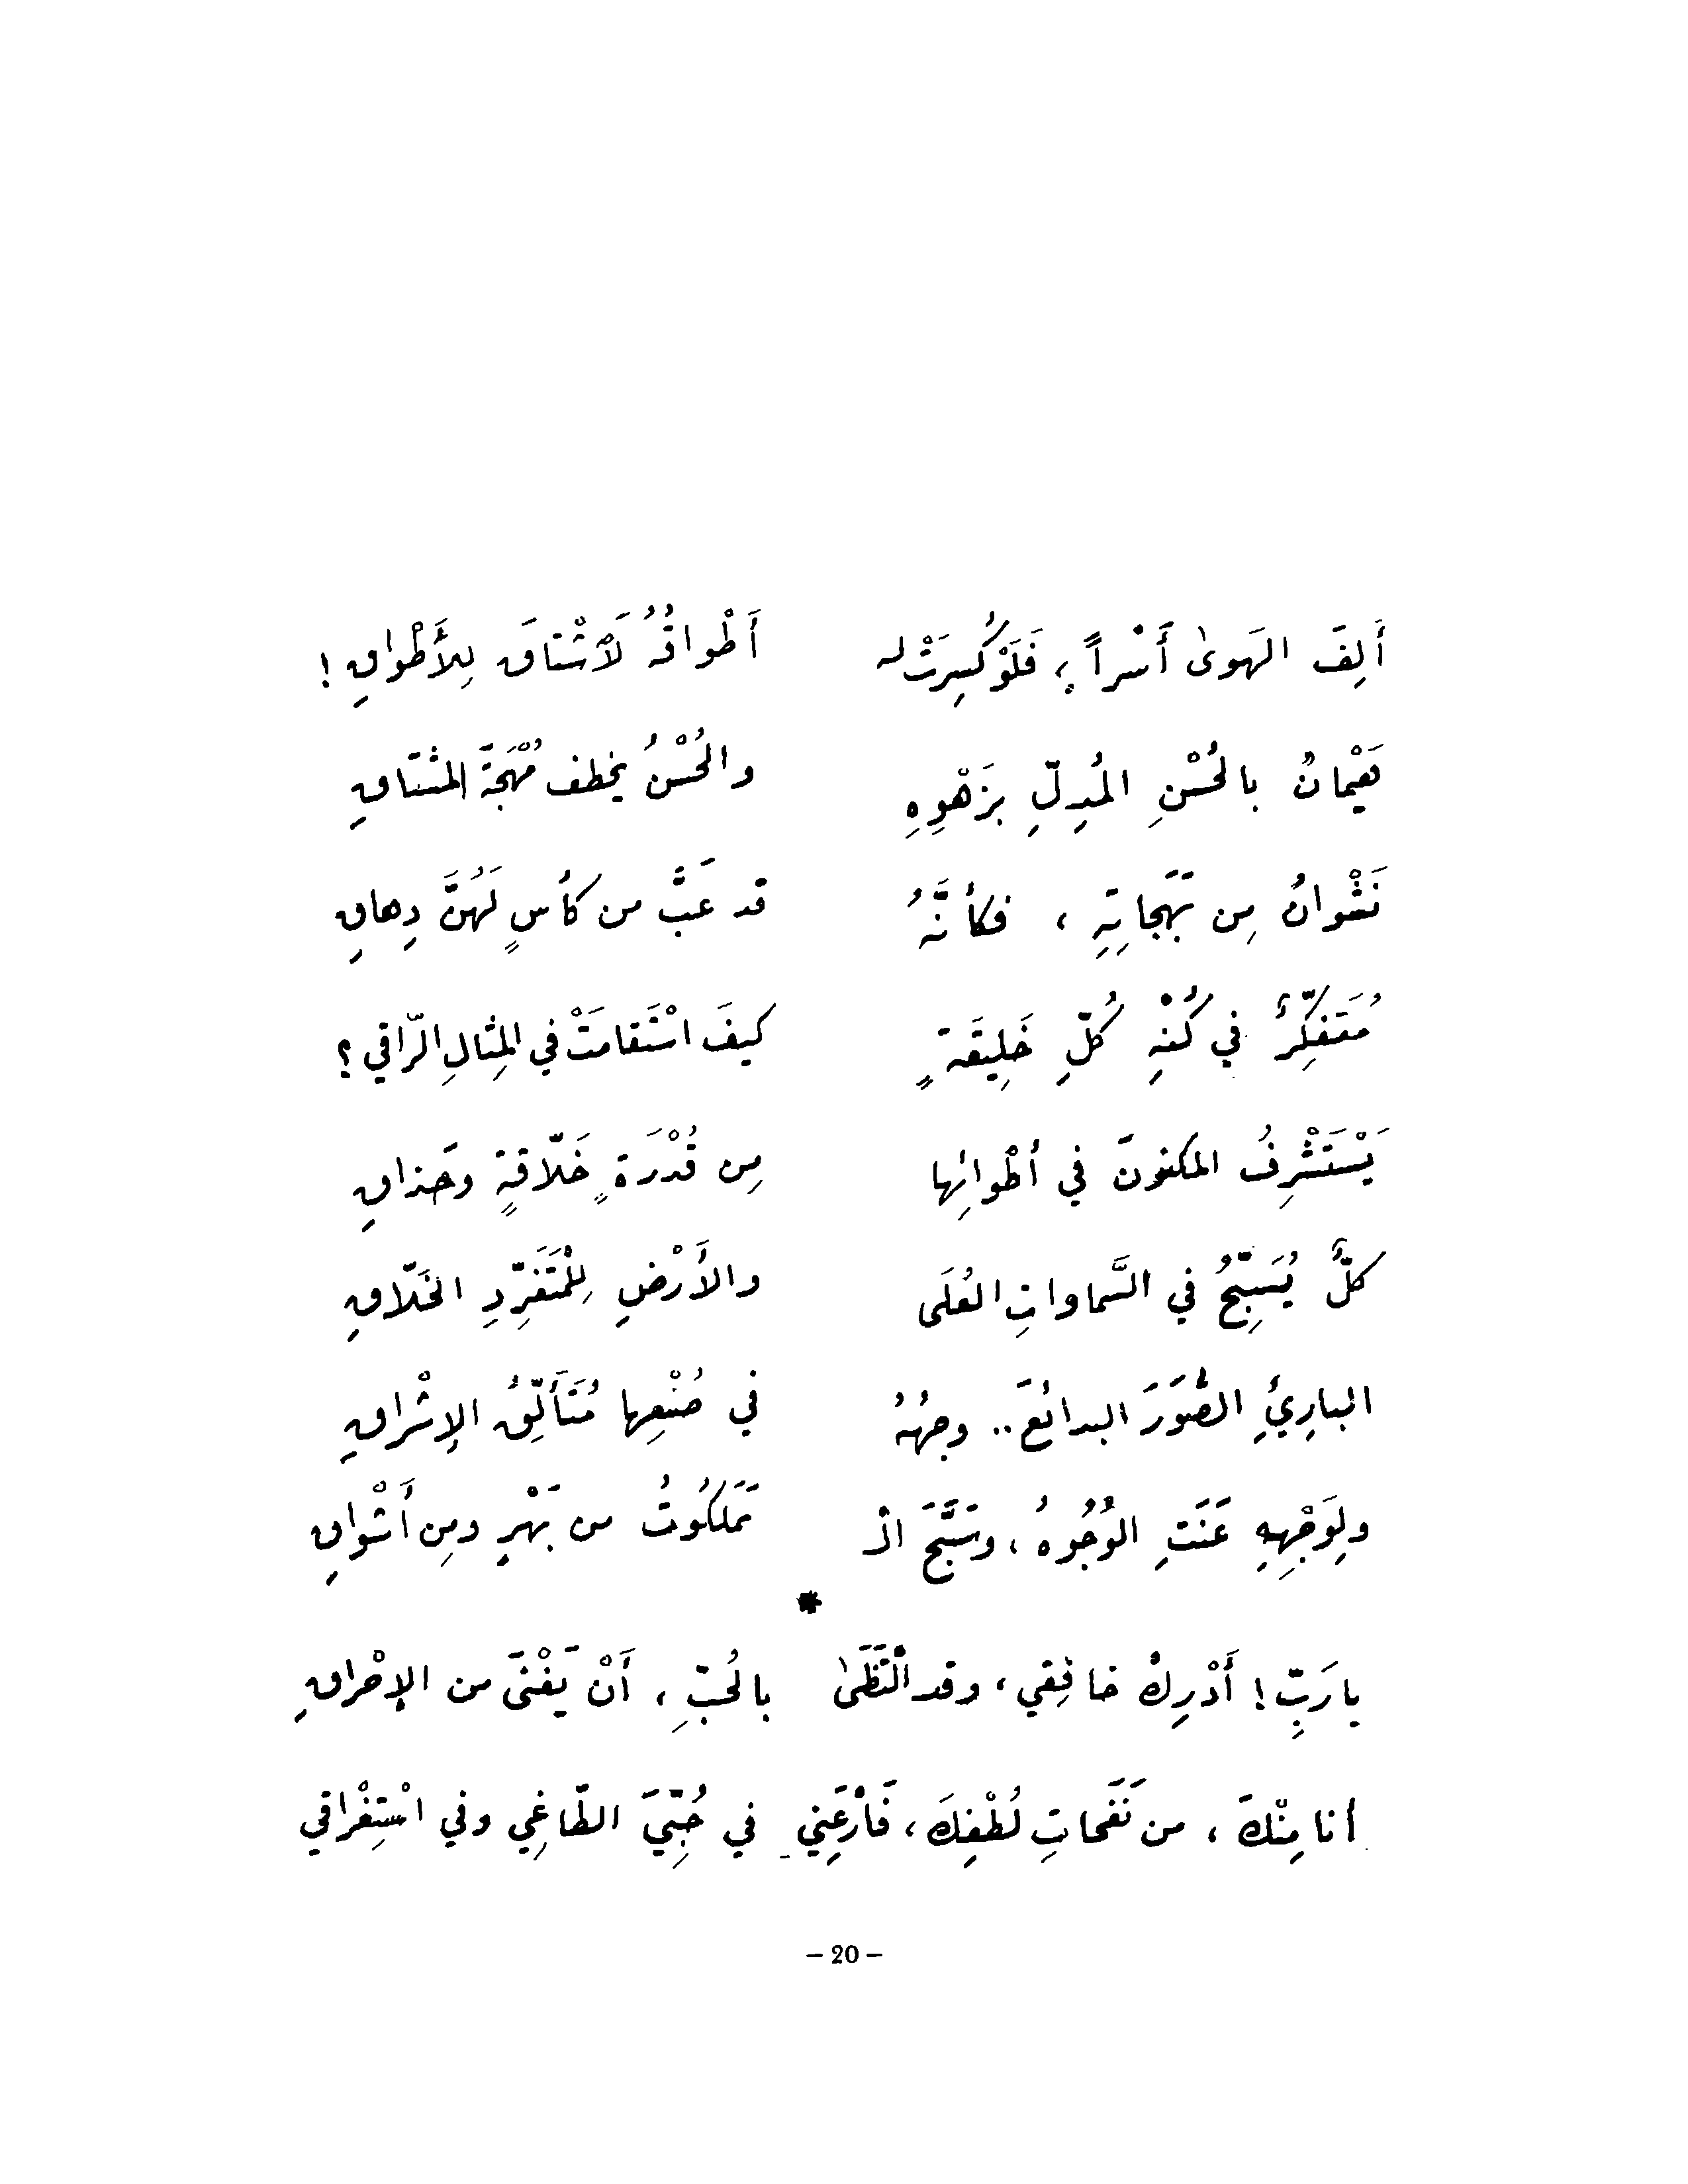 أَلِفَ الهَوىٰ أَسْراً ؛ فَلَوْ كُسِرَتْ لـه أَطْواقُهُ لَاْشْتاقَ لِلأَطْواقِ !
هَيْمانُ بالحُسْنِ المُدِلِّ بِزَهْوِهِ والحُسْنُ يخطف مُهْجَةَ المشتاقِ
نَشْوانُ مِن بَهَجاتِهِ ، فكأنَّهُ قد عَبَّ من كأسٍ لَهُنَّ دِهاقِ
مُتَفَكِّرٌ في كُنْهِ كُلِّ خَلِيقَةٍ كيفَ اسْتَقامَتْ في المِثالِ الرّاقي ؟
يَسْتَشْرِفُ المكنونَ في أطْوائِها مِن قُدْرَةٍ خَلّاقةٍ وحَذاقِ
كلٌّ يُسَبِّحُ في السَّماواتِ العُلَى والأَرْضِ لِلْمُتَفَرِّدِ الخَلّاقِ
البارِئِ الصُّوَرَ البدائعَ .. وجهُهُ في صُنْعِها مُتَأَلِّقُ الإشْراقِ
ولِوَجْهِهِ عَنَتِ الوُجُوهُ ، وسَبَّحَ الْـ مَلَكُوتُ من بَهْرٍ ومِن أَشْواقِ
*
يا رَبِّ ! أَدْرِكْ خافِقي ، وقد الْتَظَىٰ بالحُبِّ ، أَنْ يَفْنَى من الإحْراقِ
أنا مِنْكَ ، من نَفَحاتِ لُطْفِكَ ، فَاْرْعَنِي في حُبِّيَ الطّاغِي وفي اسْتِغْراقي
- 20 -